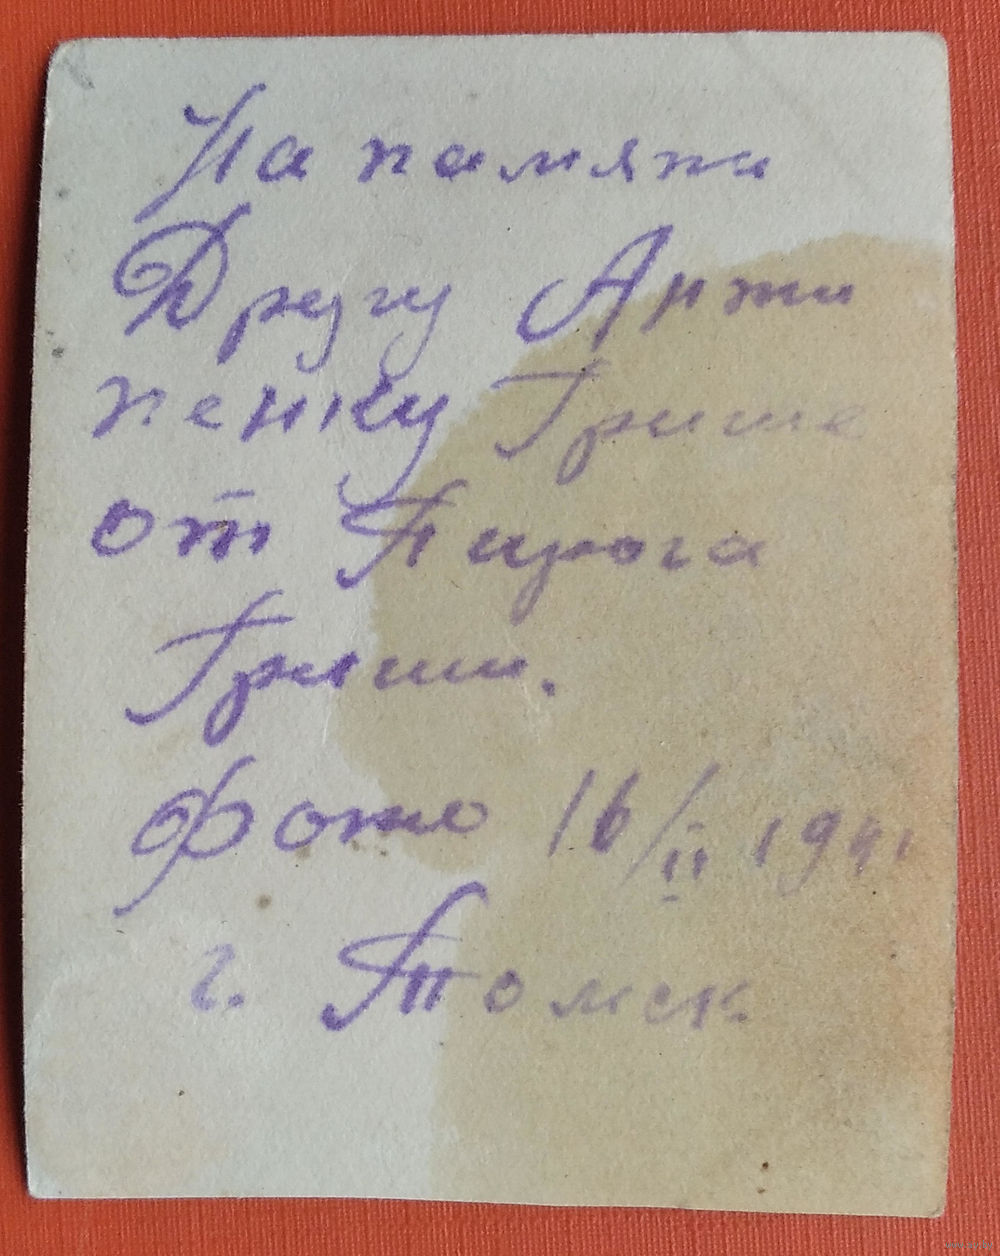 На памяти
Другу Арти
пенку Грише
от Пирога
Гриши.
Фото 16/II 1941
г. Томск